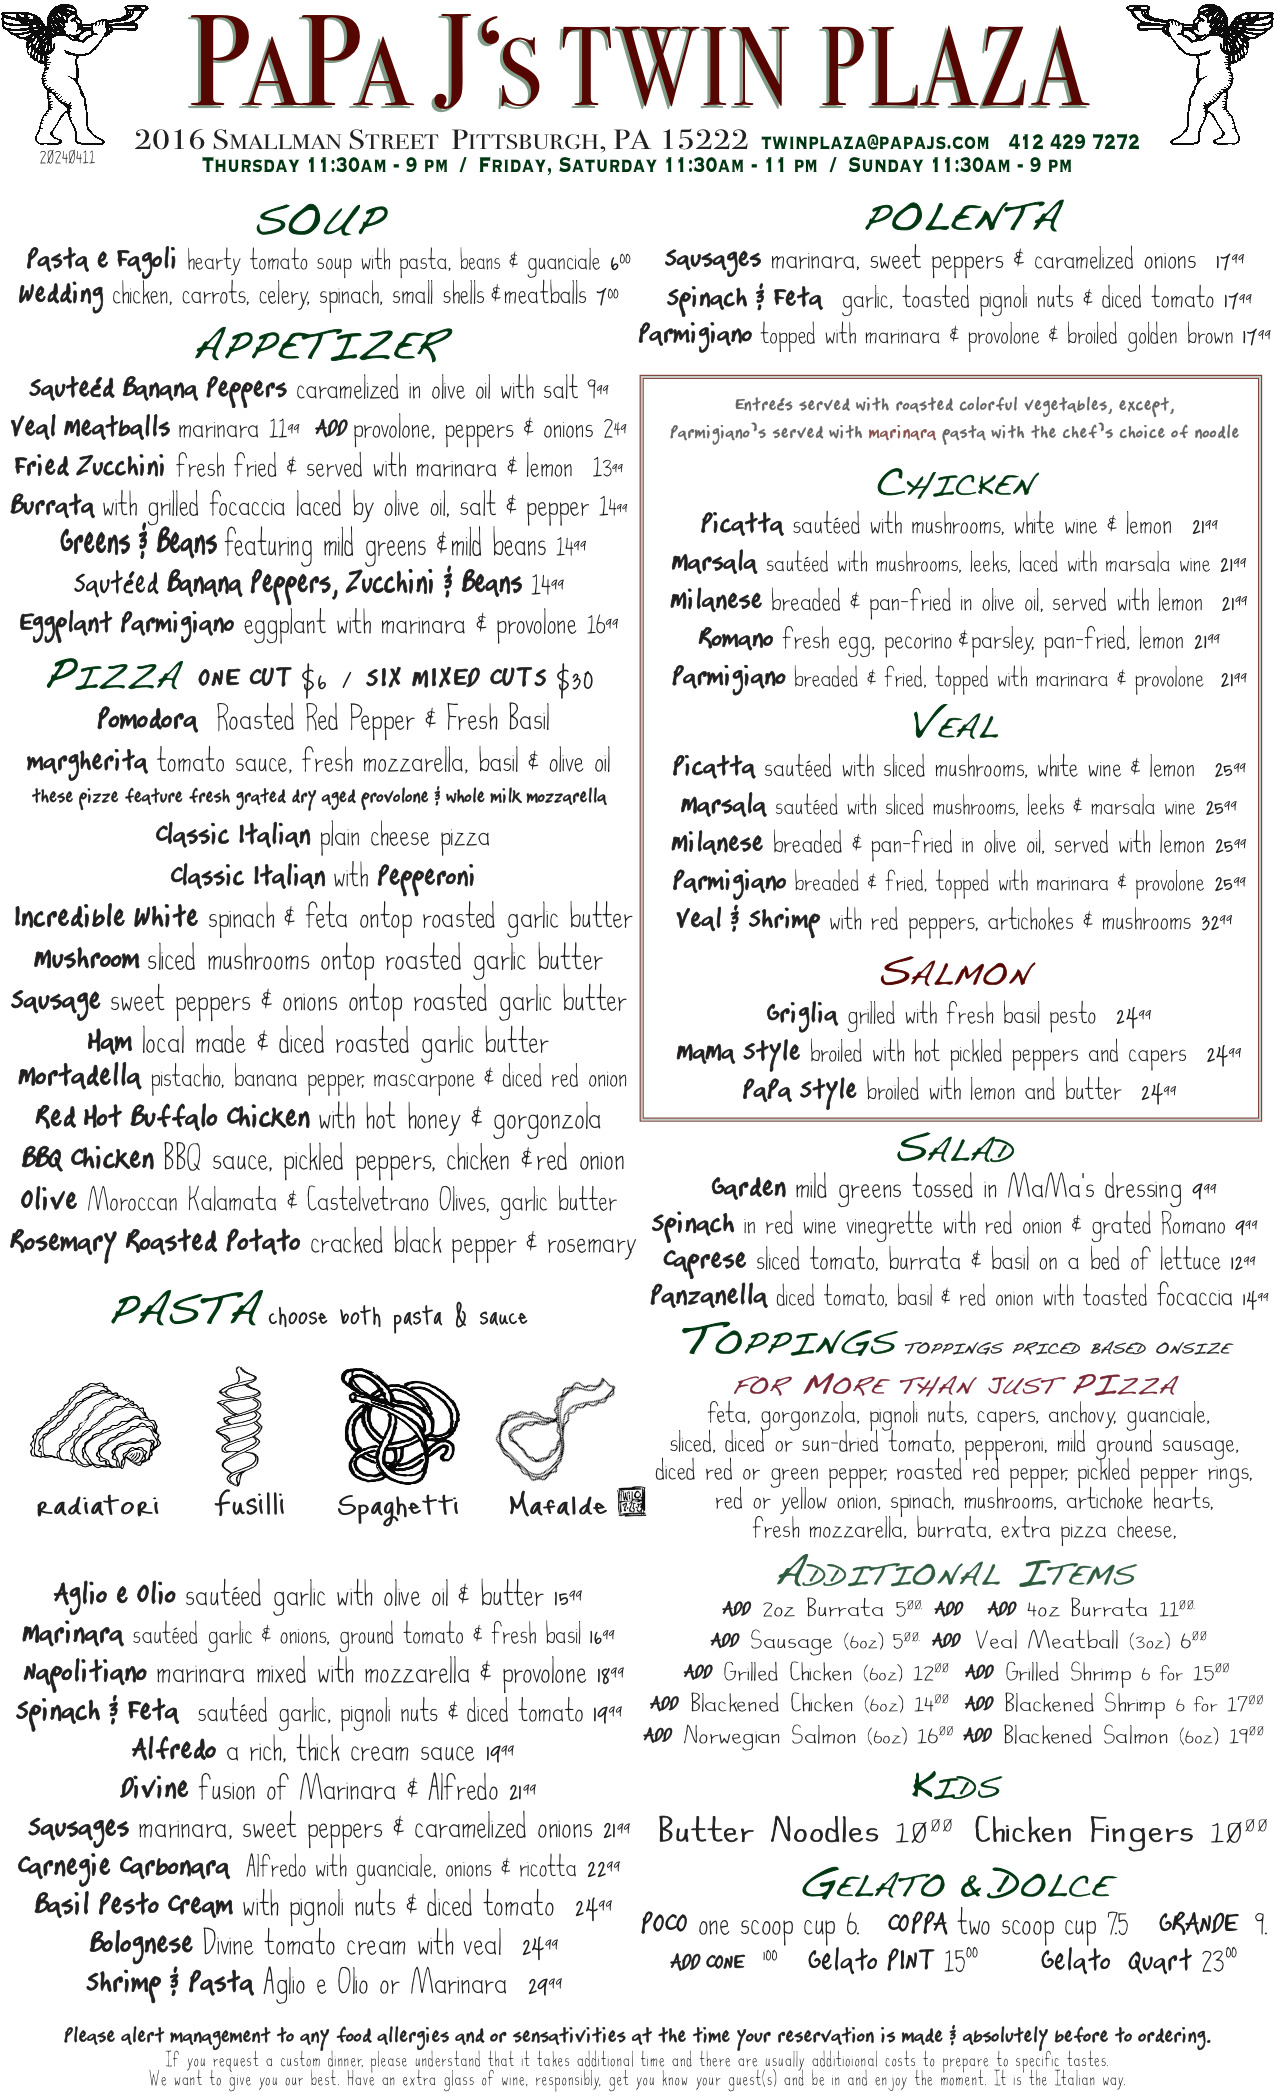 PaPa J's Twin Plaza
20240411
2016 Smallman Street Pittsburgh, PA 15222 twinplaza@papajs.com 412 429 7272
Thursday 11:30am - 9 pm / Friday, Saturday 11:30am - 11 pm / Sunday 11:30am - 9 pm
SOUP
Pasta e Fagoli hearty tomato soup with pasta, beans & guanciale 6⁰⁰
Wedding chicken, carrots, celery, spinach, small shells & meatballs 7⁰⁰
APPETIZER
Sauteéd Banana Peppers caramelized in olive oil with salt 9⁹⁹
Veal Meatballs marinara 11⁹⁹ ADD provolone, peppers & onions 2⁴⁹
Fried Zucchini fresh fried & served with marinara & lemon 13⁹⁹
Burrata with grilled focaccia laced by olive oil, salt & pepper 14⁹⁹
Greens & Beans featuring mild greens & mild beans 14⁹⁹
Sautéed Banana Peppers, Zucchini & Beans 14⁹⁹
Eggplant Parmigiano eggplant with marinara & provolone 16⁹⁹
PIZZA ONE CUT $6 / SIX MIXED CUTS $30
Pomodora Roasted Red Pepper & Fresh Basil
Margherita tomato sauce, fresh mozzarella, basil & olive oil
these pizze feature fresh grated dry aged provolone & whole milk mozzarella
Classic Italian plain cheese pizza
Classic Italian with Pepperoni
Incredible White spinach & feta ontop roasted garlic butter
Mushroom sliced mushrooms ontop roasted garlic butter
Sausage sweet peppers & onions ontop roasted garlic butter
Ham local made & diced roasted garlic butter
Mortadella pistachio, banana pepper, mascarpone & diced red onion
Red Hot Buffalo Chicken with hot honey & gorgonzola
BBQ Chicken BBQ sauce, pickled peppers, chicken & red onion
Olive Moroccan Kalamata & Castelvetrano Olives, garlic butter
Rosemary Roasted Potato cracked black pepper & rosemary
PASTA choose both pasta & sauce
Radiatori Fusilli Spaghetti Mafalde
Aglio e Olio sautéed garlic with olive oil & butter 15⁹⁹
Marinara sautéed garlic & onions, ground tomato & fresh basil 16⁹⁹
Napolitiano marinara mixed with mozzarella & provolone 18⁹⁹
Spinach & Feta sautéed garlic, pignoli nuts & diced tomato 19⁹⁹
Alfredo a rich, thick cream sauce 19⁹⁹
Divine fusion of Marinara & Alfredo 21⁹⁹
Sausages marinara, sweet peppers & caramelized onions 21⁹⁹
Carnegie Carbonara Alfredo with guanciale, onions & ricotta 22⁹⁹
Basil Pesto Cream with pignoli nuts & diced tomato 24⁹⁹
Bolognese Divine tomato cream with veal 24⁹⁹
Shrimp & Pasta Aglio e Olio or Marinara 29⁹⁹
POLENTA
Sausages marinara, sweet peppers & caramelized onions 17⁹⁹
Spinach & Feta garlic, toasted pignoli nuts & diced tomato 17⁹⁹
Parmigiano topped with marinara & provolone & broiled golden brown 17⁹⁹
Entreés served with roasted colorful vegetables, except,
Parmigiano's served with marinara pasta with the chef's choice of noodle
CHICKEN
Picatta sautéed with mushrooms, white wine & lemon 21⁹⁹
Marsala sautéed with mushrooms, leeks, laced with marsala wine 21⁹⁹
Milanese breaded & pan-fried in olive oil, served with lemon 21⁹⁹
Romano fresh egg, pecorino & parsley, pan-fried, lemon 21⁹⁹
Parmigiano breaded & fried, topped with marinara & provolone 21⁹⁹
VEAL
Picatta sautéed with sliced mushrooms, white wine & lemon 25⁹⁹
Marsala sautéed with sliced mushrooms, leeks & marsala wine 25⁹⁹
Milanese breaded & pan-fried in olive oil, served with lemon 25⁹⁹
Parmigiano breaded & fried, topped with marinara & provolone 25⁹⁹
Veal & Shrimp with red peppers, artichokes & mushrooms 32⁹⁹
SALMON
Griglia grilled with fresh basil pesto 24⁹⁹
MaMa Style broiled with hot pickled peppers and capers 24⁹⁹
PaPa Style broiled with lemon and butter 24⁹⁹
SALAD
Garden mild greens tossed in MaMa's dressing 9⁹⁹
Spinach in red wine vinegrette with red onion & grated Romano 9⁹⁹
Caprese sliced tomato, burrata & basil on a bed of lettuce 12⁹⁹
Panzanella diced tomato, basil & red onion with toasted focaccia 14⁹⁹
TOPPINGS TOPPINGS PRICED BASED ONSIZE
FOR MORE THAN JUST PIZZA
feta, gorgonzola, pignoli nuts, capers, anchovy, guanciale,
sliced, diced or sun-dried tomato, pepperoni, mild ground sausage,
diced red or green pepper, roasted red pepper, pickled pepper rings,
red or yellow onion, spinach, mushrooms, artichoke hearts,
fresh mozzarella, burrata, extra pizza cheese,
ADDITIONAL ITEMS
ADD 2oz Burrata 5⁰⁰ ADD ADD 4oz Burrata 11⁰⁰
ADD Sausage (6oz) 5⁰⁰ ADD Veal Meatball (3oz) 6⁰⁰
ADD Grilled Chicken (6oz) 12⁰⁰ ADD Grilled Shrimp 6 for 15⁰⁰
ADD Blackened Chicken (6oz) 14⁰⁰ ADD Blackened Shrimp 6 for 17⁰⁰
ADD Norwegian Salmon (6oz) 16⁰⁰ ADD Blackened Salmon (6oz) 19⁰⁰
KIDS
Butter Noodles 10⁰⁰ Chicken Fingers 10⁰⁰
GELATO & DOLCE
POCO one scoop cup 6. COPPA two scoop cup 7.5 GRANDE 9.
ADD CONE 1⁰⁰ Gelato PINT 15⁰⁰ Gelato Quart 23⁰⁰
Please alert management to any food allergies and or sensativities at the time your reservation is made & absolutely before to ordering.
If you request a custom dinner, please understand that it takes additional time and there are usually additioional costs to prepare to specific tastes.
We want to give you our best. Have an extra glass of wine, responsibly, get you know your guest(s) and be in and enjoy the moment. It is the Italian way.